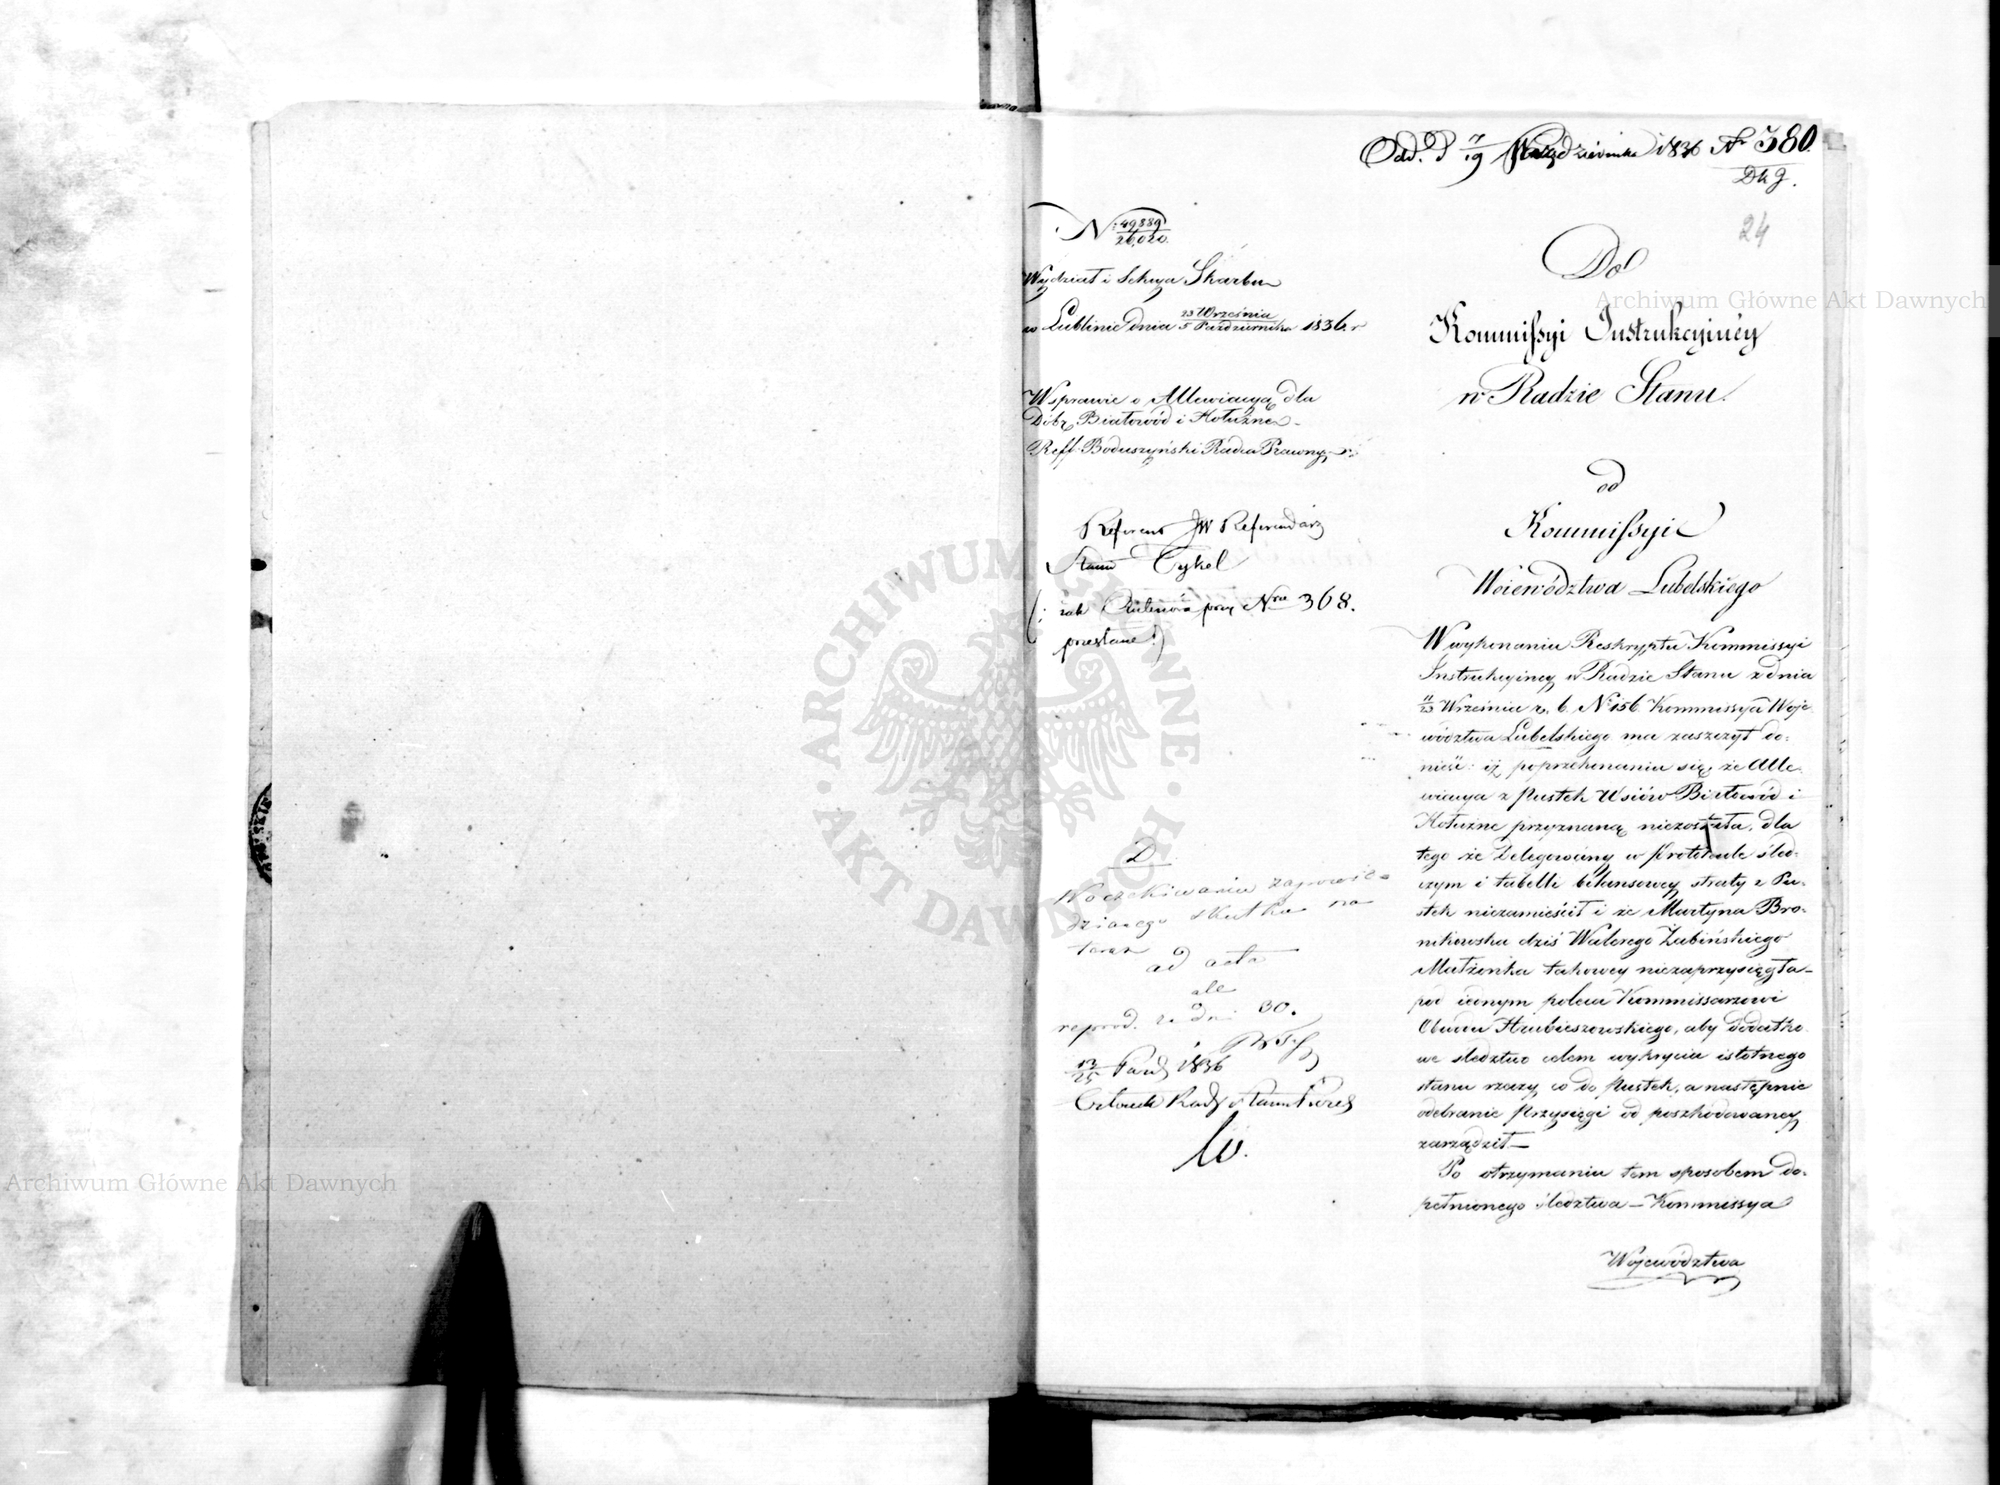 Odd. d 7/19 Października 1836 Nr 380.
Dkg.
24
N: 49889/26,020.
Wydział i Sekcya Skarbu
w Lublinie dnia 23 Września/5 Października 1836. r
W sprawie o Allewiacyą dla
Dóbr Białowód i Hołużne
Reff. Boduszyński Radca Prawny
Referent JW Referendarz
Stanu Tykel
(: jak przy Nrze 368.
przesłane :)
D
W oczekiwaniu zapowie-
dzianego skutku na
teraz
ad acta
ale
reprod. za dni 30.
13/25 Paźd 1836
Członek Rady Stanu
Do
Kommissyi Instrukcyiney
w Radzie Stanu.
od
Kommissyi
Woiewództwa Lubelskiego
W wykonaniu Reskryptu Kommissyi
Instrukcyiney w Radzie Stanu z dnia
11/23 Września r. b. N: 156 Kommissya Woje-
wództwa Lubelskiego ma zaszczyt do-
nieść: iż po przekonaniu się, że Alle-
wiacya z Pustek Wsiów Białowód i
Hołużne przyznaną niezostała, dla
tego że Delegowany w Protokule śled-
czym i tabelli bilansowey straty z Pu-
stek niezamieścił i że Martyna Bro-
nikowska dziś Walerego Żabińskiego
Małżonka takowey niezaprzysięgła -
pod iednym poleca Kommissarzowi
Obwodu Hrubieszowskiego, aby dodatko-
we śledztwo celem wykrycia istotnego
stanu rzeczy co do Pustek, a następnie
odebranie Przysięgi od poszkodowaney
zarządził -
Po otrzymaniu tem sposobem do-
pełnionego śledztwa - Kommissya
Województwa
Archiwum Główne Akt Dawnych
Archiwum Główne Akt Dawnych
ARCHIWUM GŁÓWNE · AKT DAWNYCH ·